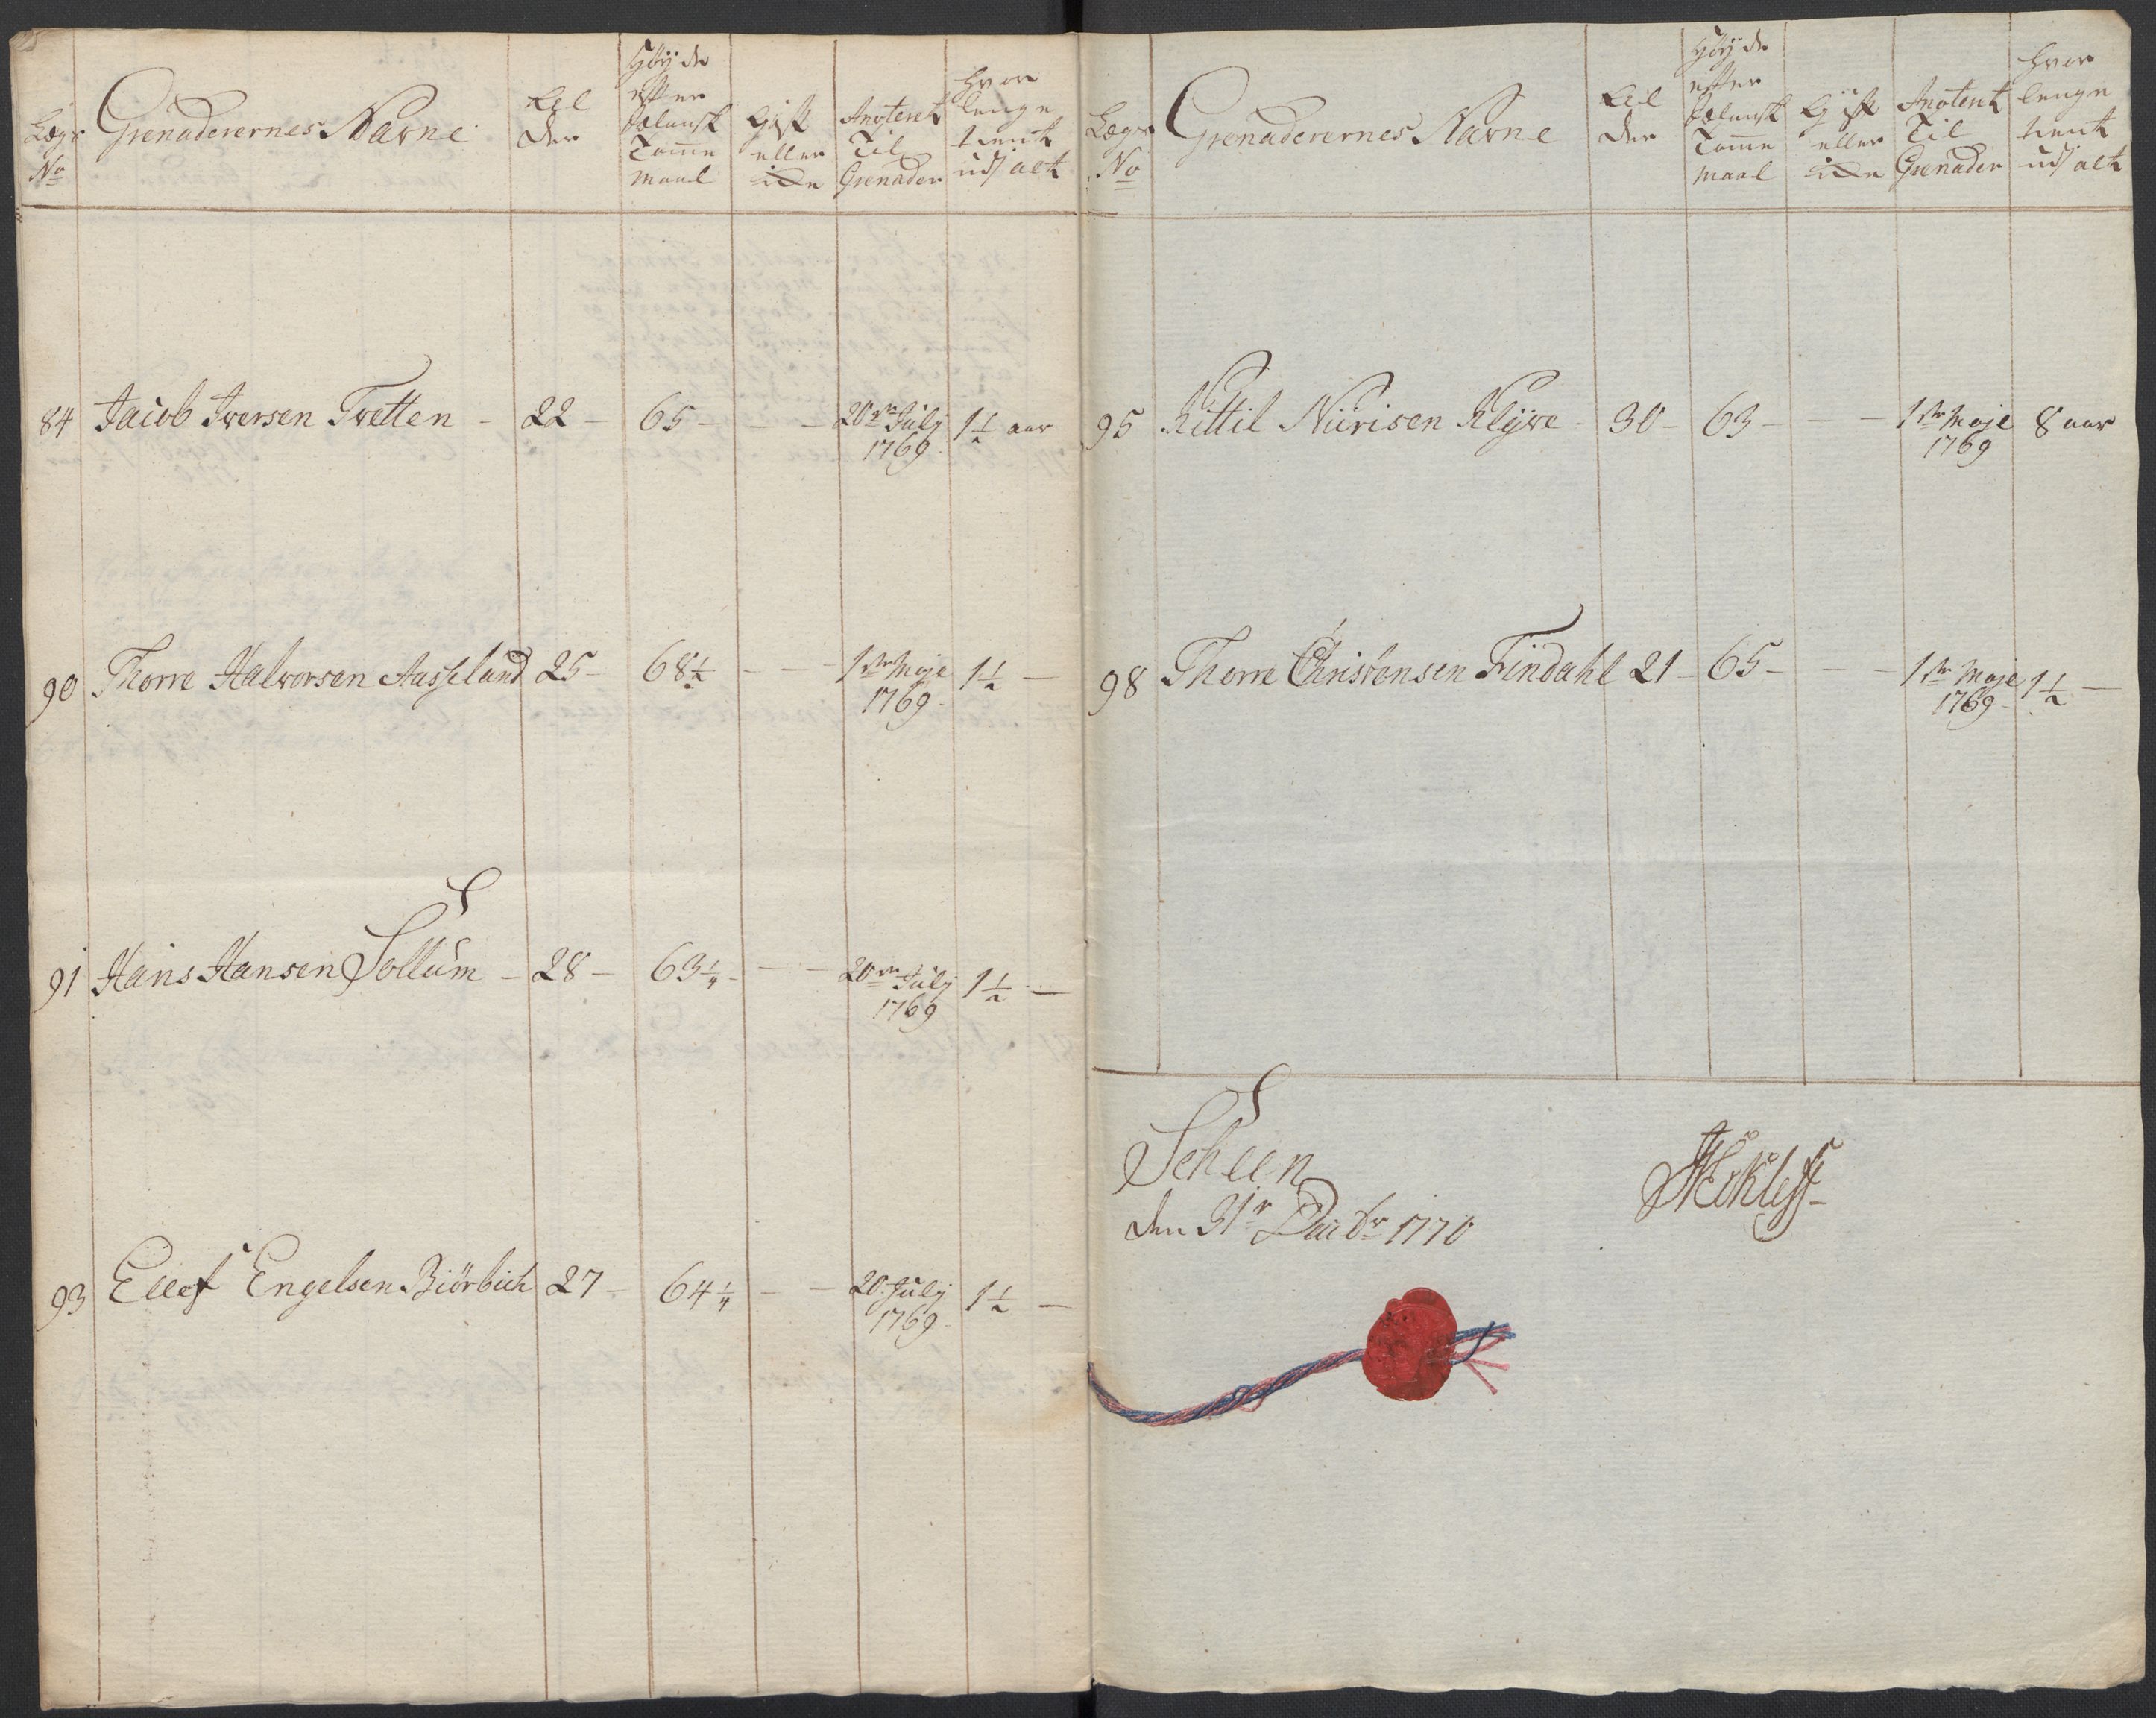 Lægs
No
Grenaderernes Navne
Al
der
Høyde
efter
Sælansk
Tomme
maal
Gift
eller
eÿ
Anoteret
Til
Grenader
hvor
lenge
tient
udj alt
84 Jacob Iversen Tvetten - 22 - 65 - - - 20de Julÿ 1769 1½ aar
90 Thorre Halvorsen Aasland 25 - 68½ - - - 1ste Maje 1769 1½ -
91 Hans Hansen Sollum - 28 - 63¼ - - - 20de Julÿ 1769 1½ -
93 Ellef Engelsen Biørbich 27 - 64¼ - - 20 Julÿ 1769 1½ -
Lægs
No
Grenaderernes Navne
Al
der
Høyde
efter
Sælansk
Tomme
maal
Gift
eller
Anoteret
Til
Grenader
hvor
lenge
tient
udj alt
95 Kittil Nirisen Klÿve - 30 - 63 - - - 1ste Maje 1769 8 aar
98 Thorre Christensen Findahl 21 - 65 - - - 1ste Maje 1769 1½ -
Scheen
den 31te Decbr 1770